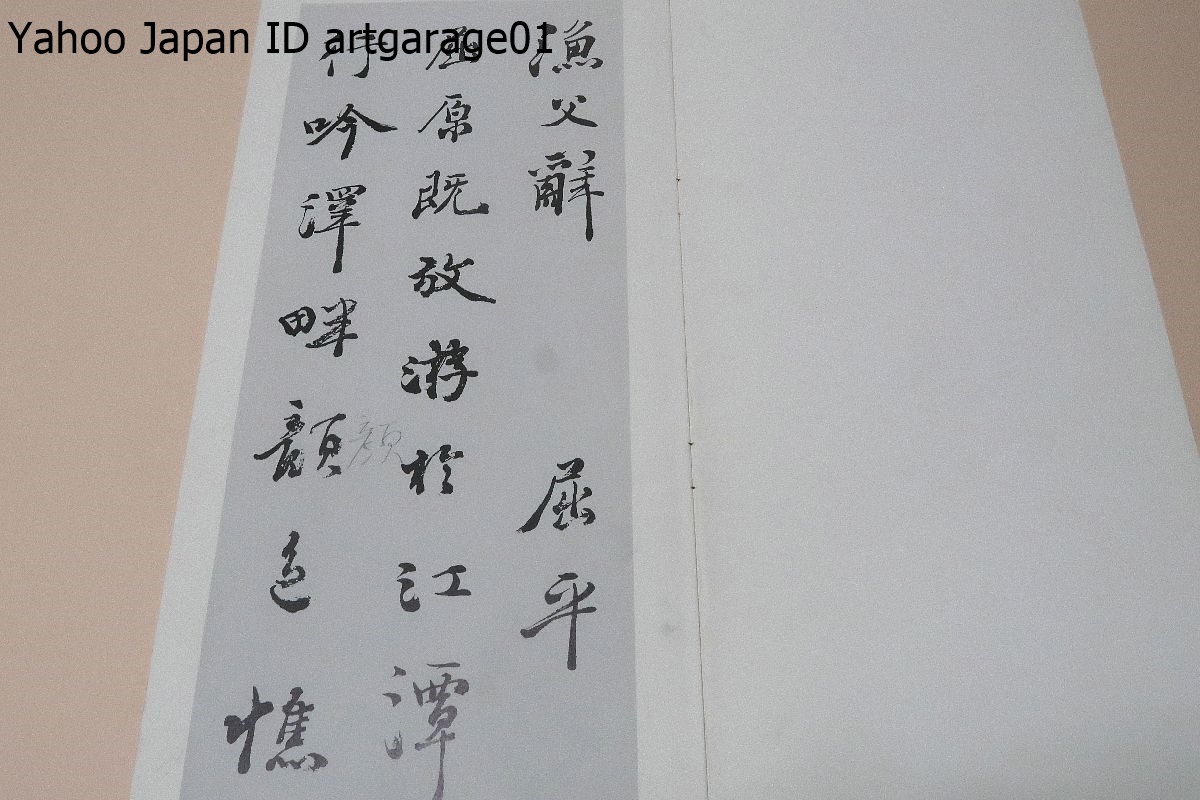 Yahoo Japan ID artgarage01
漁父辭 屈平
屈原既放游於江潭
行吟澤畔顏色憔
顏